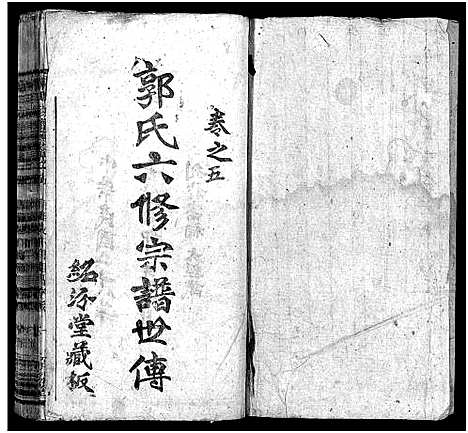 卷之五
郭氏六修宗譜世傳
紹汾堂藏板